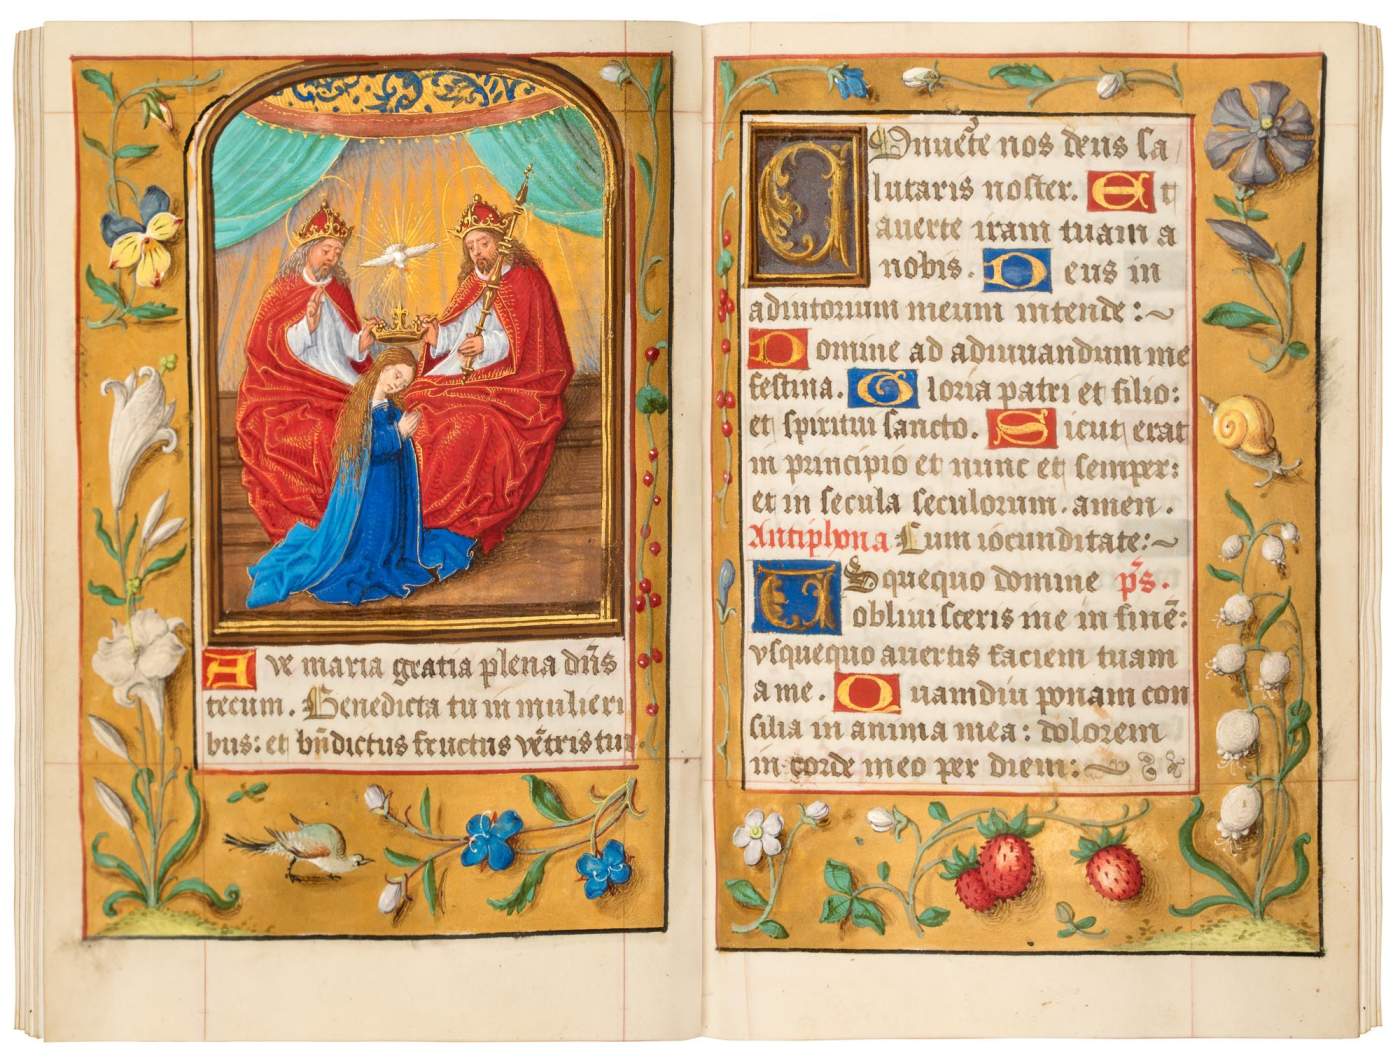 Ave maria gratia plena dn̄s
tecum. Benedicta tu in mulieri
bus: et bn̄dictus fructus vētris tui.
Conuerte nos deus sa
lutaris noster. Et
auerte iram tuam a
nobis. Deus in
adiutorium meum intende:~
Domine ad adiuuandum me
festina. Gloria patri et filio:
et spiritui sancto. Sicut erat
in principio et nunc et semper:
et in secula seculorum. amen.
Antiphona Cum iocunditate:~
Usquequo domine p̄s.
obliuisceris me in finē:
vsquequo auertis faciem tuam
a me. Quamdiu ponam con
silia in anima mea: dolorem
in corde meo per diem:~